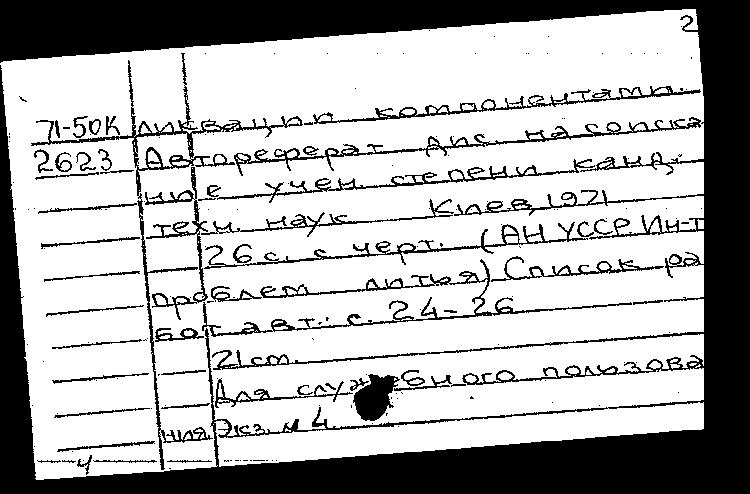 2
71-50К ликвации компонентами.
2623 Автореферат дис. на соиска
ние учен. степени канд.
техн. наук Киев, 1971
26 с. с черт. (АН УССР. Ин-т
проблем литья) Список ра
бот авт.: с. 24-26
21 см.
Для служебного пользова
ния. Экз. № 4